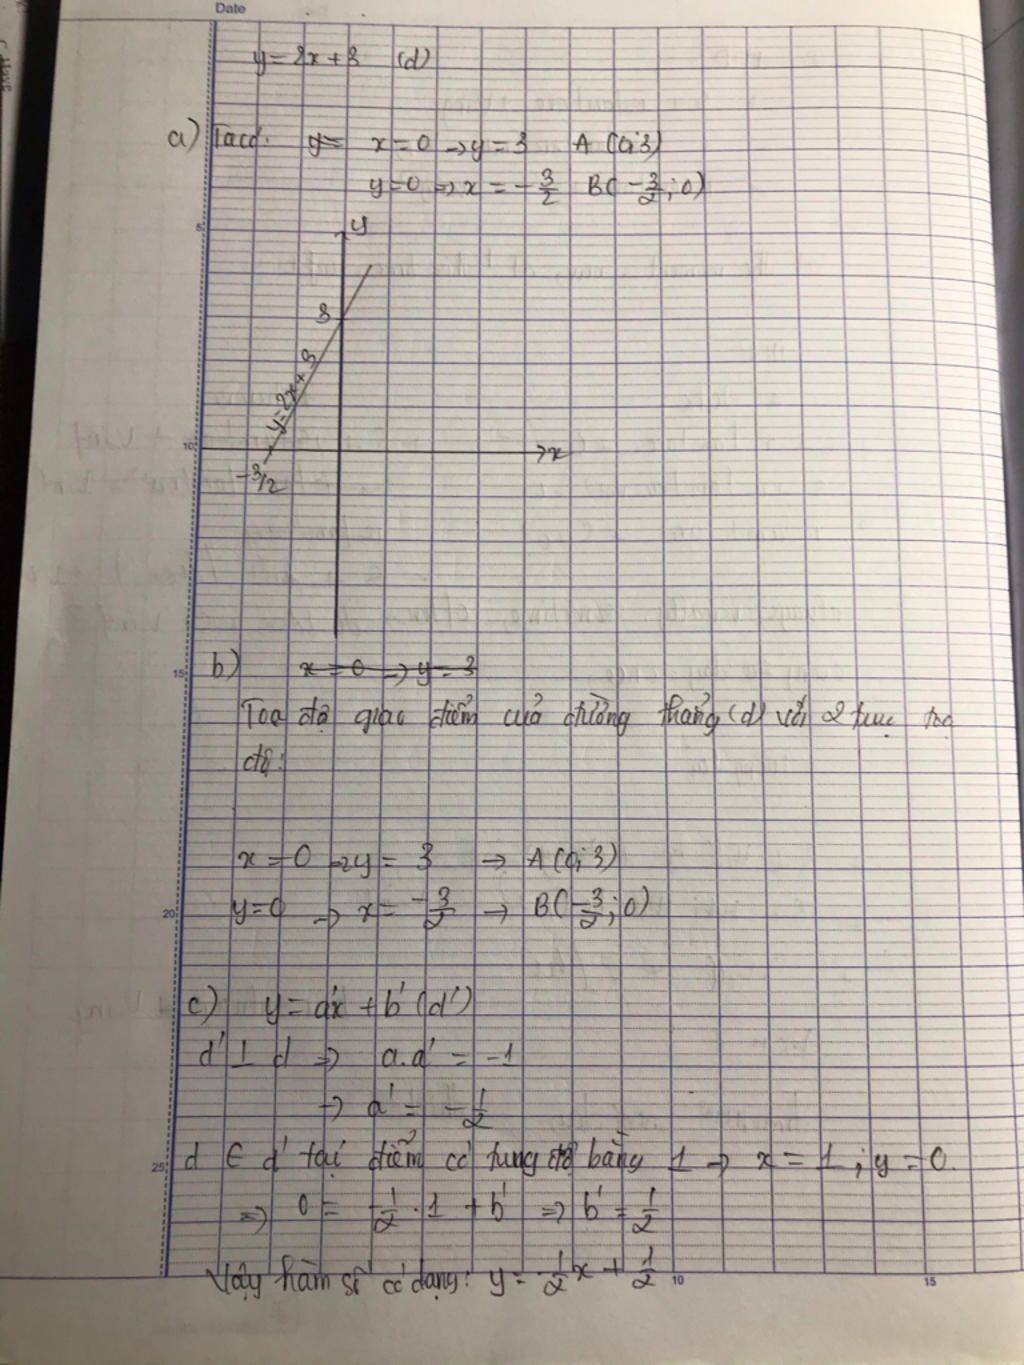 Date
y = 2x + 3 (d)
a) Ta có: y= x = 0 → y = 3 A (0; 3)
y = 0 → x = -3/2 B(-3/2; 0)
5
y
3
y = 2x + 3
10
x
-3/2
15
b) x = 0 → y = 3
Toạ độ giao điểm của đường thẳng (d) với 2 trục toạ
độ:
x = 0 → y = 3 → A (0; 3)
20
y = 0 → x = -3/2 → B(-3/2; 0)
c) y = a'x + b' (d')
d' ⊥ d ⇒ a.a' = -1
→ a' = -1/2
25
d ∈ d' tại điểm có tung độ bằng 1 → x = 1; y = 0.
⇒ 0 = -1/2 . 1 + b' ⇒ b' = 1/2
Vậy hàm số có dạng: y = -1/2x + 1/2
10 15